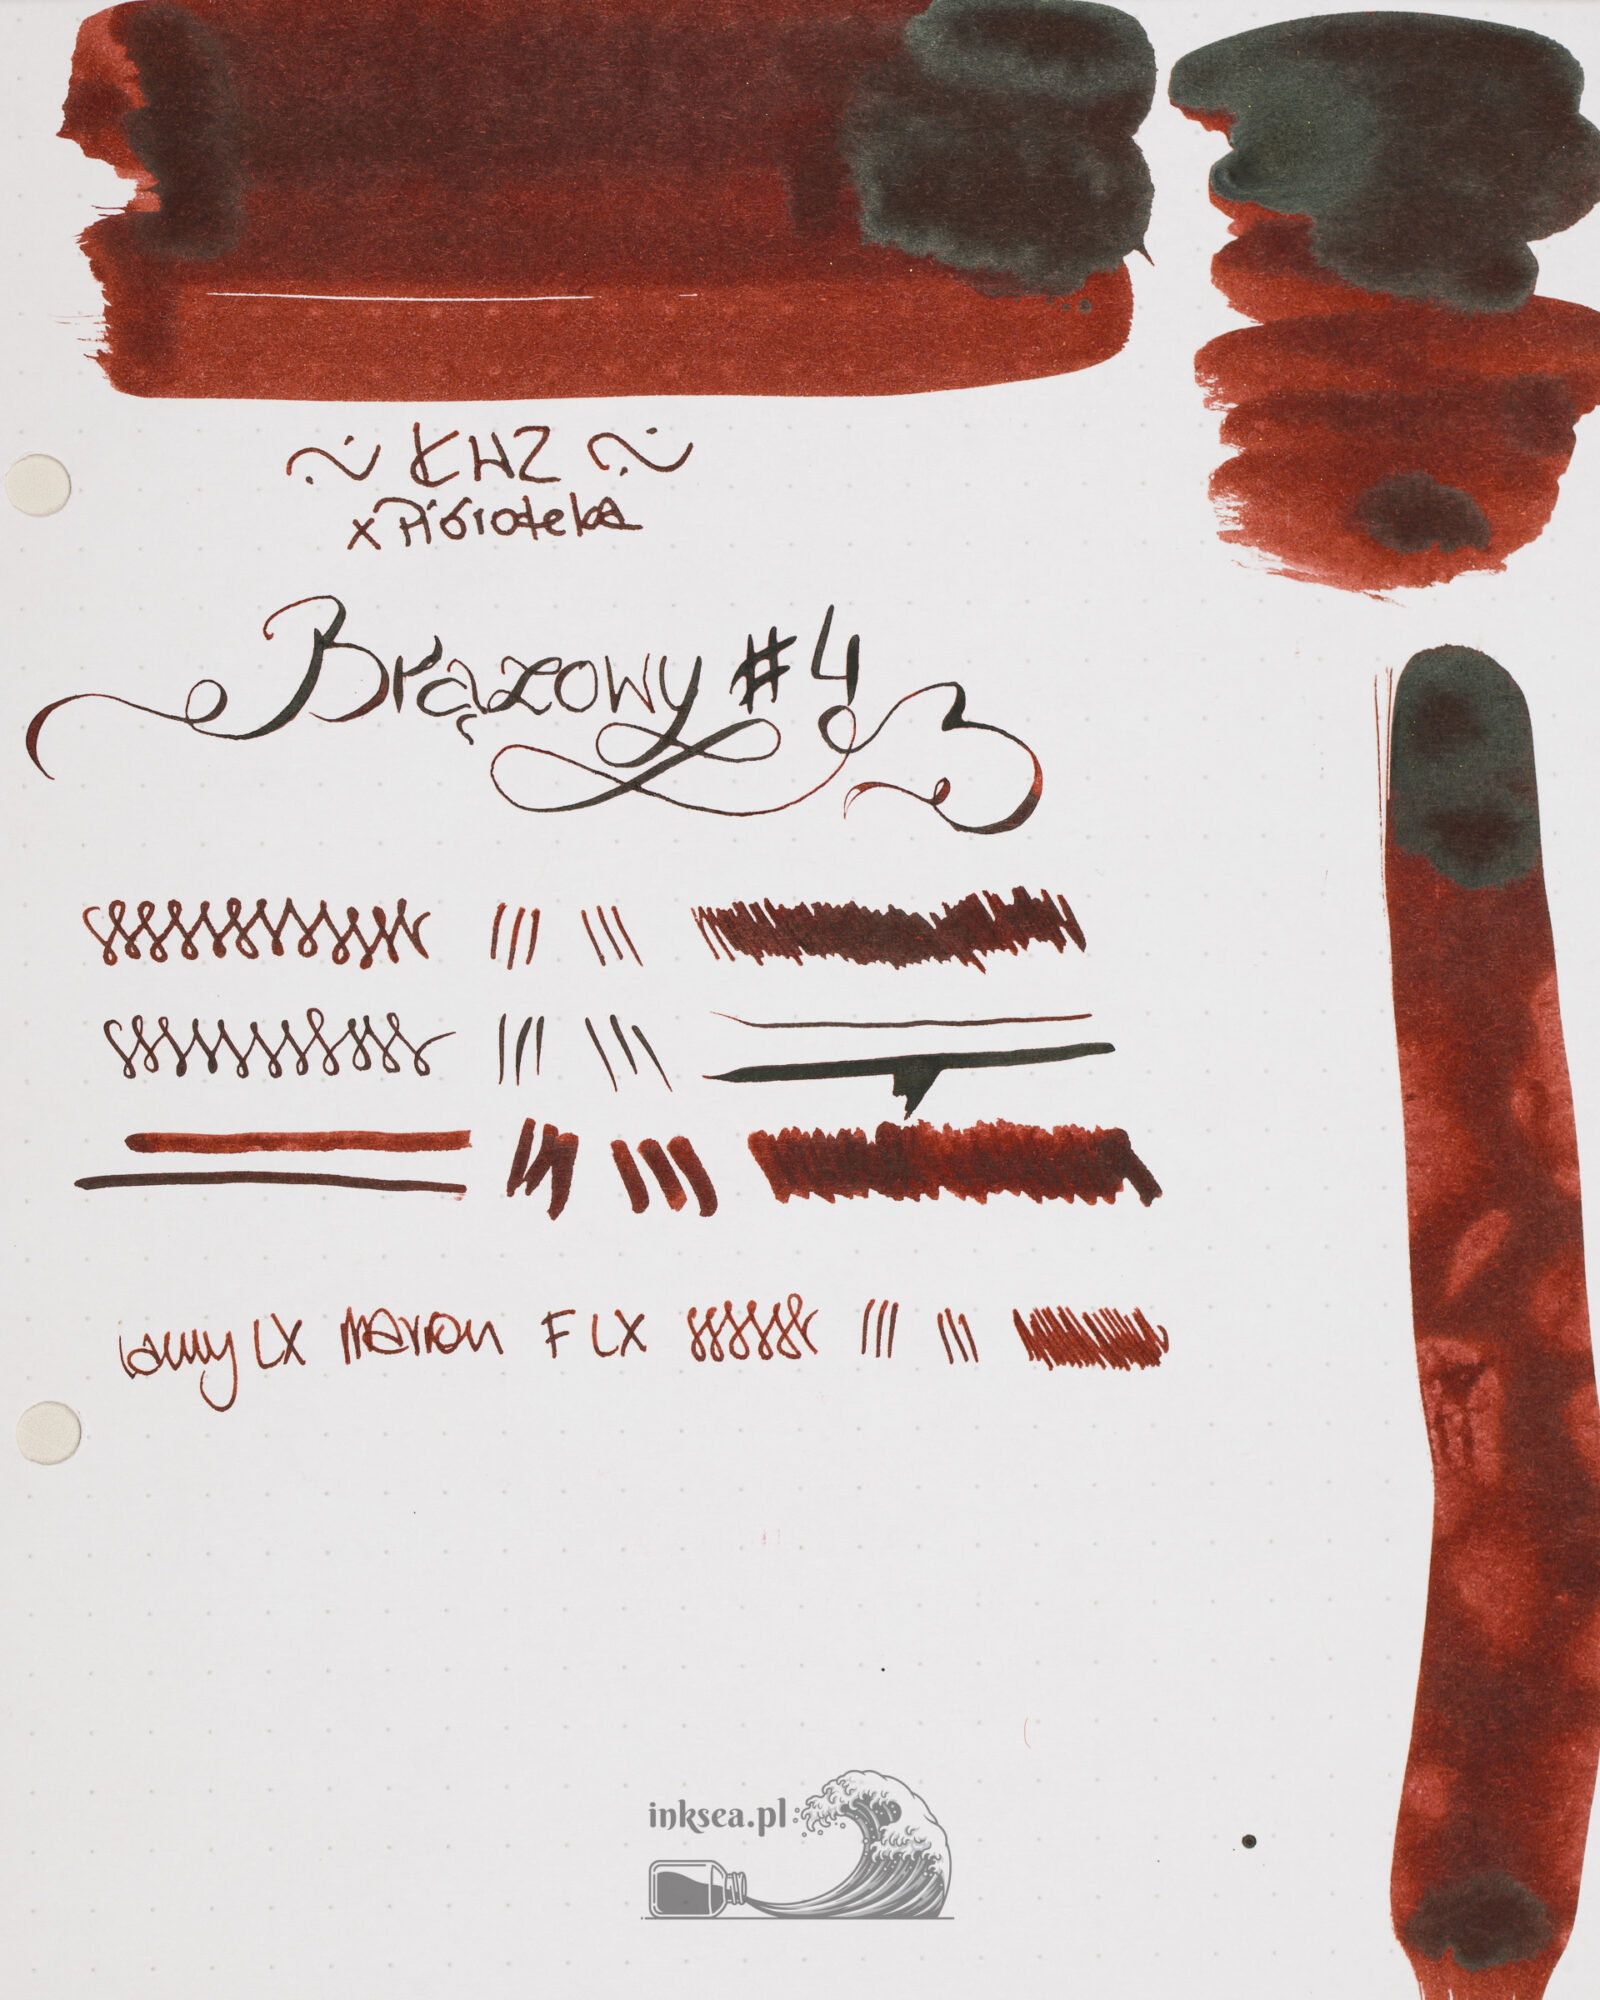 ~ KWZ ~
x Pióroteka
Brązowy #4
Lamy LX Marron F LX
inksea.pl